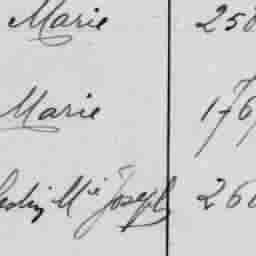 Marie 258
Marie 176
Mie Joseph 26